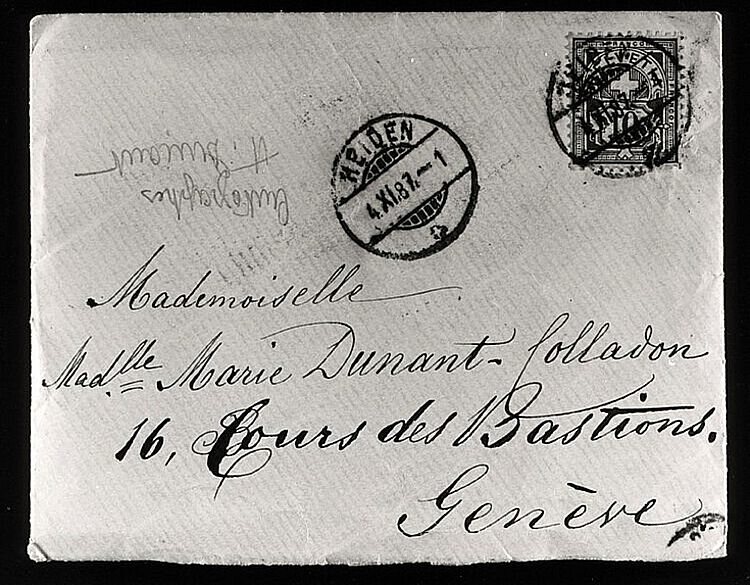 HELVETIA
10
HEIDEN
4.XI.87.–1
Autographes
H. Dunant
Mademoiselle
Mad.lle Marie Dunant-Colladon
16, Cours des Bastions.
Genève